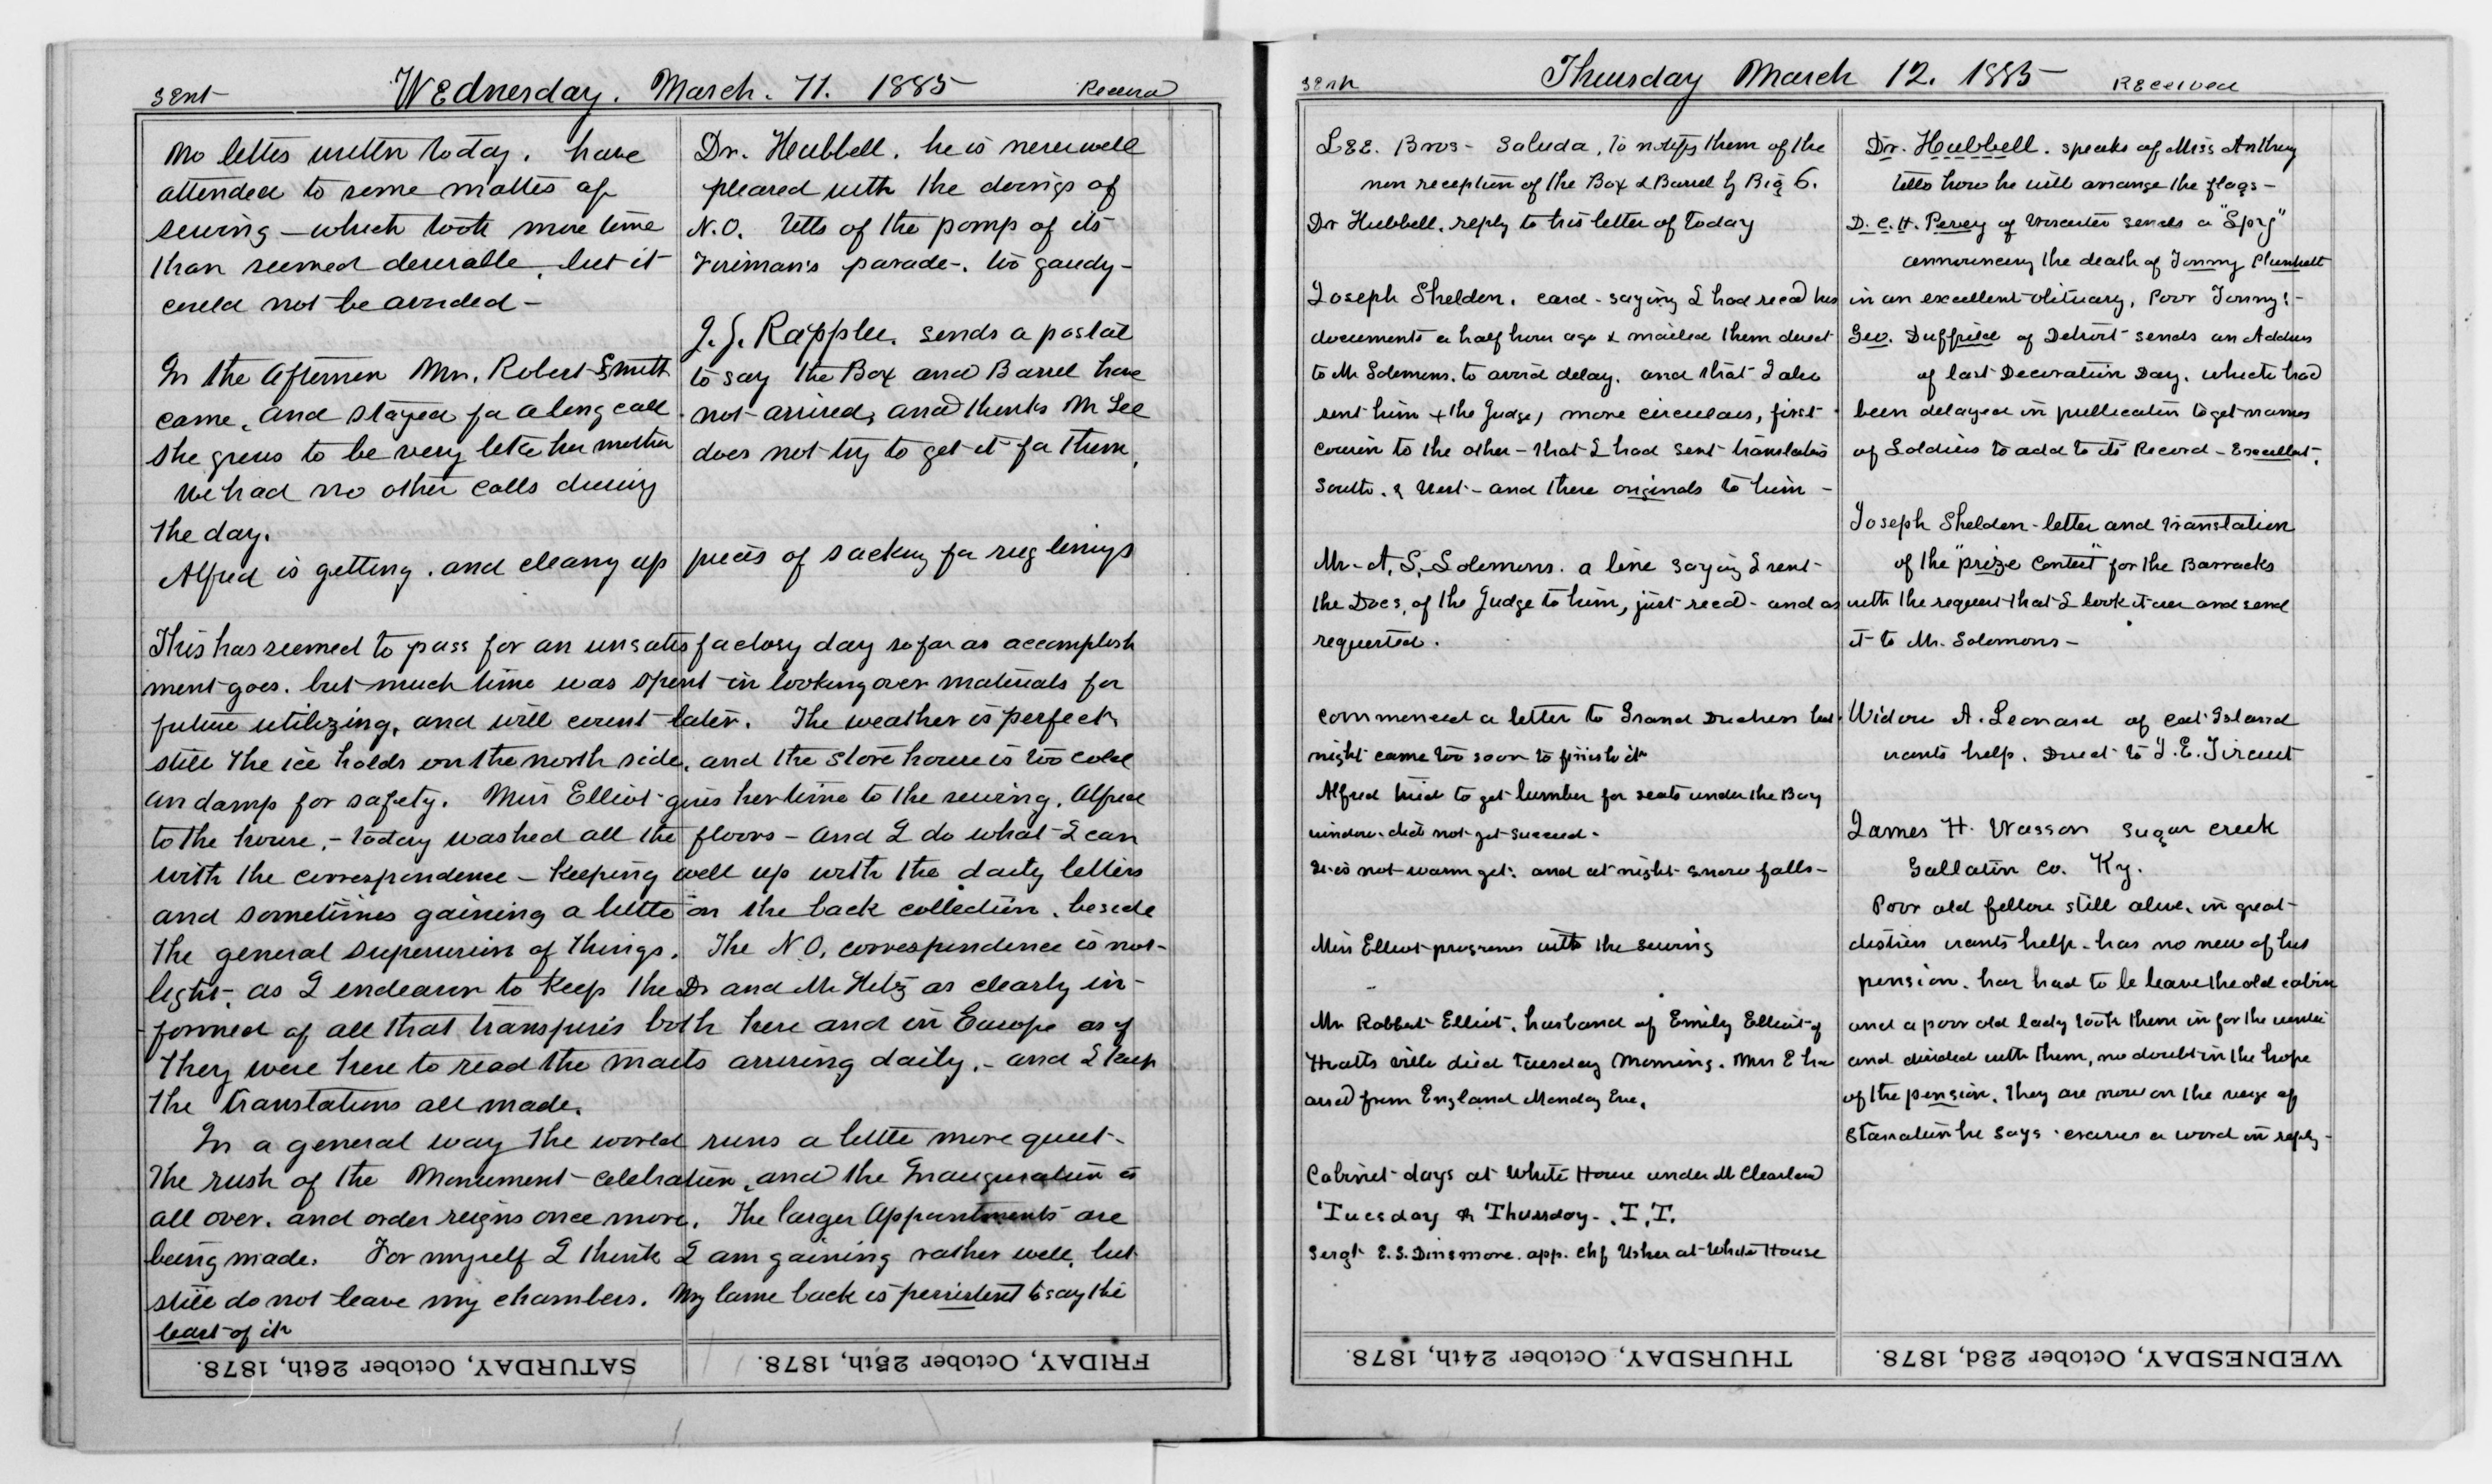 Sent
Wednesday. March. 11. 1885
Received
No letters written today. have
attended to some matters of
sewing – which took more time
than seemed desirable, but it
could not be avoided –
In the Afternoon Mrs. Robert Smith
came, and stayed for a long call.
She grows to be very like her mother
We had no other calls during
the day.
Dr. Hubbell. he is never well
pleased with the doings of
N.O. tells of the pomp of its
Fireman's parade –. too gaudy –
J. J. Rapplee. sends a postal
to say the Box and Barrel have
not arrived, and thinks Mr Lee
does not try to get it for them,
Alfred is getting. and cleany up pieces of sacking for rug linings
This has seemed to pass for an unsatisfactory day so far as accomplish
ment goes. but much time was spent in looking over materials for
future utilizing, and will count later. The weather is perfect,
still the ice holds on the north side, and the store house is too cold
an damp for safety. Miss Elliot gives her time to the sewing. Alfred
to the house, – today washed all the floors – and I do what I can
with the correspondence – keeping well up with the daily letters
and sometimes gaining a little on the back collection. beside
the general supervision of things. The N.O. correspondence is not
light, as I endeavor to keep the Dr and Mr Hitz as clearly in-
formed of all that transpires both here and in Europe as if
they were here to read the mails arriving daily. – and I keep
the translations all made.
In a general way the world runs a little more quiet –
the rush of the Monument celebration, and the Inauguration is
all over. and order reigns once more. The larger Appointments are
being made. For myself I think I am gaining rather well, but
still do not leave my chambers. My lame back is persistent to say the
least of it
SATURDAY, October 26th, 1878.
FRIDAY, October 25th, 1878.
Sent
Thursday March 12. 1885
Received
Lee. Bros – Saluda, to notify them of the
non reception of the Box & Barrel by Big 6.
Dr Hubbell. reply to his letter of today
Joseph Sheldon. card – saying I had recd his
documents a half hour ago & mailed them direct
to Mr Solomons. to avoid delay. and that I also
sent him & the Judge, more circulars, first
cousin to the other – that I had sent translations
South. & West – and these originals to him –
Mr – A. S. Solomons. a line saying I sent
the Docs, of the Judge to him, just recd – and as
requested.
Commenced a letter to Grand Duchess but
night came too soon to finish it
Alfred tried to get lumber for seats under the Bay
window. did not get succeed.
It is not warm yet. and at night snow falls –
Miss Elliot progresses with the sewing
Mr Robbert Elliot. husband of Emily Elliot of
Hyatts ville died Tuesday Morning. Mrs E has
arrd from England Monday Eve.
Cabinet days at White House under Mr Cleveland
Tuesday & Thursday –. T. T.
Sergt E. S. Dinsmore. app. chf Usher at White House
Dr. Hubbell. speaks of Miss Anthony
tells how he will arrange the flags –
D. C. H. Percy of Worcester sends a "Spy"
announcing the death of Tommy Plunkett
in an excellent obituary, Poor Tommy! –
Geo. Duffield of Detroit sends an Address
of last Decoration Day. which had
been delayed in publication to get names
of Soldiers to add to its Record – Excellent.
Joseph Sheldon – letter and translation
of the "prize contest" for the Barracks
with the request that I look it over and send
it to Mr. Solomons –
Widow A. Leonard of Cat Island
wants help. Direct to J. E. Tircuit
James H. Wasson Sugar creek
Gallatin Co. Ky.
Poor old fellow still alive. in great
distress wants help – has no news of his
pension. has had to be leave the old cabin
and a poor old lady took them in for the winter
and divided with them, no doubt in the hope
of the pension. They are now on the verge of
Starvation he says. craves a word in reply –
THURSDAY, October 24th, 1878.
WEDNESDAY, October 23d, 1878.